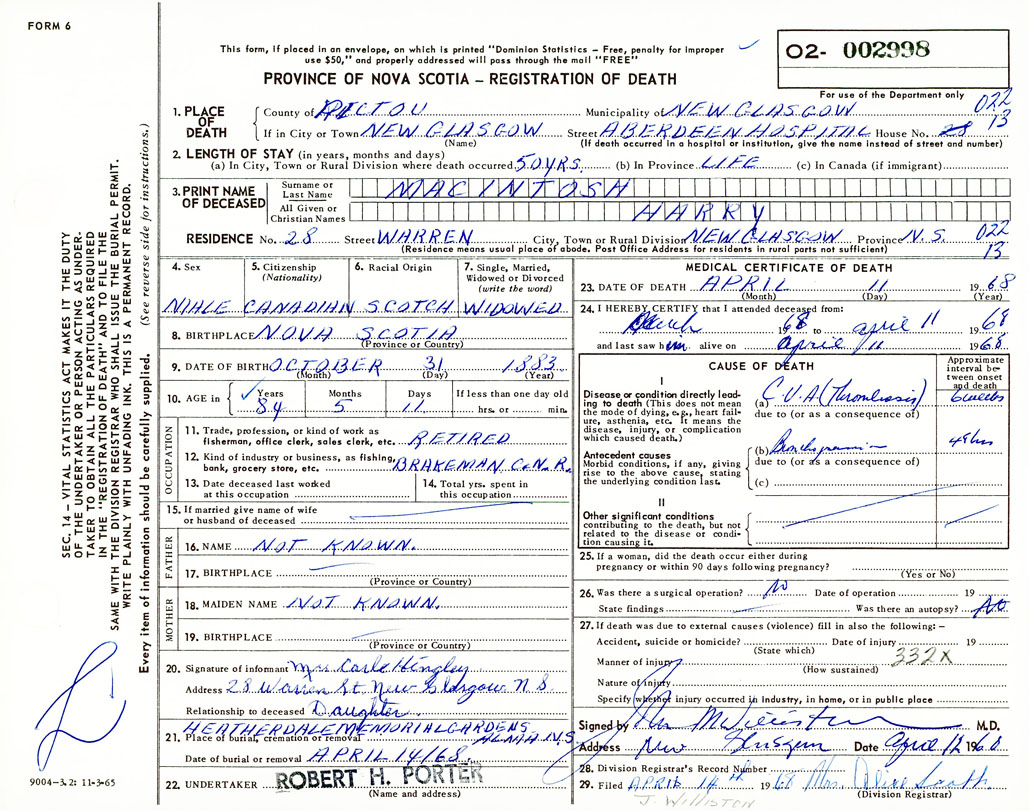 FORM 6
This form, if placed in an envelope, on which is printed "Dominion Statistics – Free, penalty for improper
use $50," and properly addressed will pass through the mail "FREE"
02- 002998
PROVINCE OF NOVA SCOTIA – REGISTRATION OF DEATH
For use of the Department only
022
13
1. PLACE OF DEATH County of PICTOU Municipality of NEW GLASGOW
If in City or Town NEW GLASGOW Street ABERDEEN HOSPITAL House No. 28
(Name) (If death occurred in a hospital or institution, give the name instead of street and number)
2. LENGTH OF STAY (in years, months and days)
(a) In City, Town or Rural Division where death occurred 50 YRS. (b) In Province LIFE (c) In Canada (if immigrant)
3. PRINT NAME OF DECEASED Surname or Last Name MACINTOSH
All Given or Christian Names HARRY
RESIDENCE No. 28 Street WARREN City, Town or Rural Division NEW GLASGOW Province N.S. 022
(Residence means usual place of abode. Post Office Address for residents in rural parts not sufficient) 13
4. Sex 5. Citizenship (Nationality) 6. Racial Origin 7. Single, Married, Widowed or Divorced (write the word)
MALE CANADIAN SCOTCH WIDOWED
8. BIRTHPLACE NOVA SCOTIA
(Province or Country)
9. DATE OF BIRTH OCTOBER 31 1883
(Month) (Day) (Year)
10. AGE in Years Months Days If less than one day old
84 5 11 hrs. or min.
OCCUPATION
11. Trade, profession, or kind of work as
fisherman, office clerk, sales clerk, etc. RETIRED
12. Kind of industry or business, as fishing,
bank, grocery store, etc. BRAKEMAN C.N.R.
13. Date deceased last worked at this occupation 14. Total yrs. spent in this occupation
15. If married give name of wife
or husband of deceased
FATHER
16. NAME NOT KNOWN.
17. BIRTHPLACE
(Province or Country)
MOTHER
18. MAIDEN NAME NOT KNOWN.
19. BIRTHPLACE
(Province or Country)
20. Signature of informant Mrs Carle Hingley
Address 28 Warren St. New Glasgow N S
Relationship to deceased Daughter
HEATHERDALE MEMORIAL GARDENS
21. Place of burial, cremation or removal ALMA N.S.
Date of burial or removal APRIL 14/68
22. UNDERTAKER ROBERT H. PORTER
(Name and address)
MEDICAL CERTIFICATE OF DEATH
23. DATE OF DEATH APRIL 11 1968
(Month) (Day) (Year)
24. I HEREBY CERTIFY that I attended deceased from:
March 1968 to april 11 1968
and last saw him alive on April 11 1968
CAUSE OF DEATH
Approximate interval between onset and death
I
Disease or condition directly leading to death (This does not mean
the mode of dying, e.g., heart failure, asthenia, etc. It means the
disease, injury, or complication
which caused death.)
(a) C.V.A (Thrombosis) 6 weeks
due to (or as a consequence of)
Antecedent causes
Morbid conditions, if any, giving
rise to the above cause, stating
the underlying condition last.
(b) 48 hrs
due to (or as a consequence of)
(c)
II
Other significant conditions
contributing to the death, but not
related to the disease or condition causing it.
25. If a woman, did the death occur either during
pregnancy or within 90 days following pregnancy?
(Yes or No)
26. Was there a surgical operation? No Date of operation 19
State findings Was there an autopsy? No
27. If death was due to external causes (violence) fill in also the following: –
Accident, suicide or homicide? Date of injury 19
(State which) 332X
Manner of injury
(How sustained)
Nature of injury
Specify whether injury occurred in industry, in home, or in public place
Signed by M.D.
Address New Glasgow Date April 12 1968
28. Division Registrar's Record Number
29. Filed APRIL 14th 1968 Mrs. Olive Scott
(Division Registrar)
J. WILLISTON
SEC. 14 – VITAL STATISTICS ACT MAKES IT THE DUTY
OF THE UNDERTAKER OR PERSON ACTING AS UNDERTAKER TO OBTAIN ALL THE PARTICULARS REQUIRED
IN THE "REGISTRATION OF DEATH" AND TO FILE THE
SAME WITH THE DIVISION REGISTRAR WHO SHALL ISSUE THE BURIAL PERMIT.
WRITE PLAINLY WITH UNFADING INK. THIS IS A PERMANENT RECORD.
Every item of information should be carefully supplied. (See reverse side for instructions.)
9004-3.2: 11-3-65